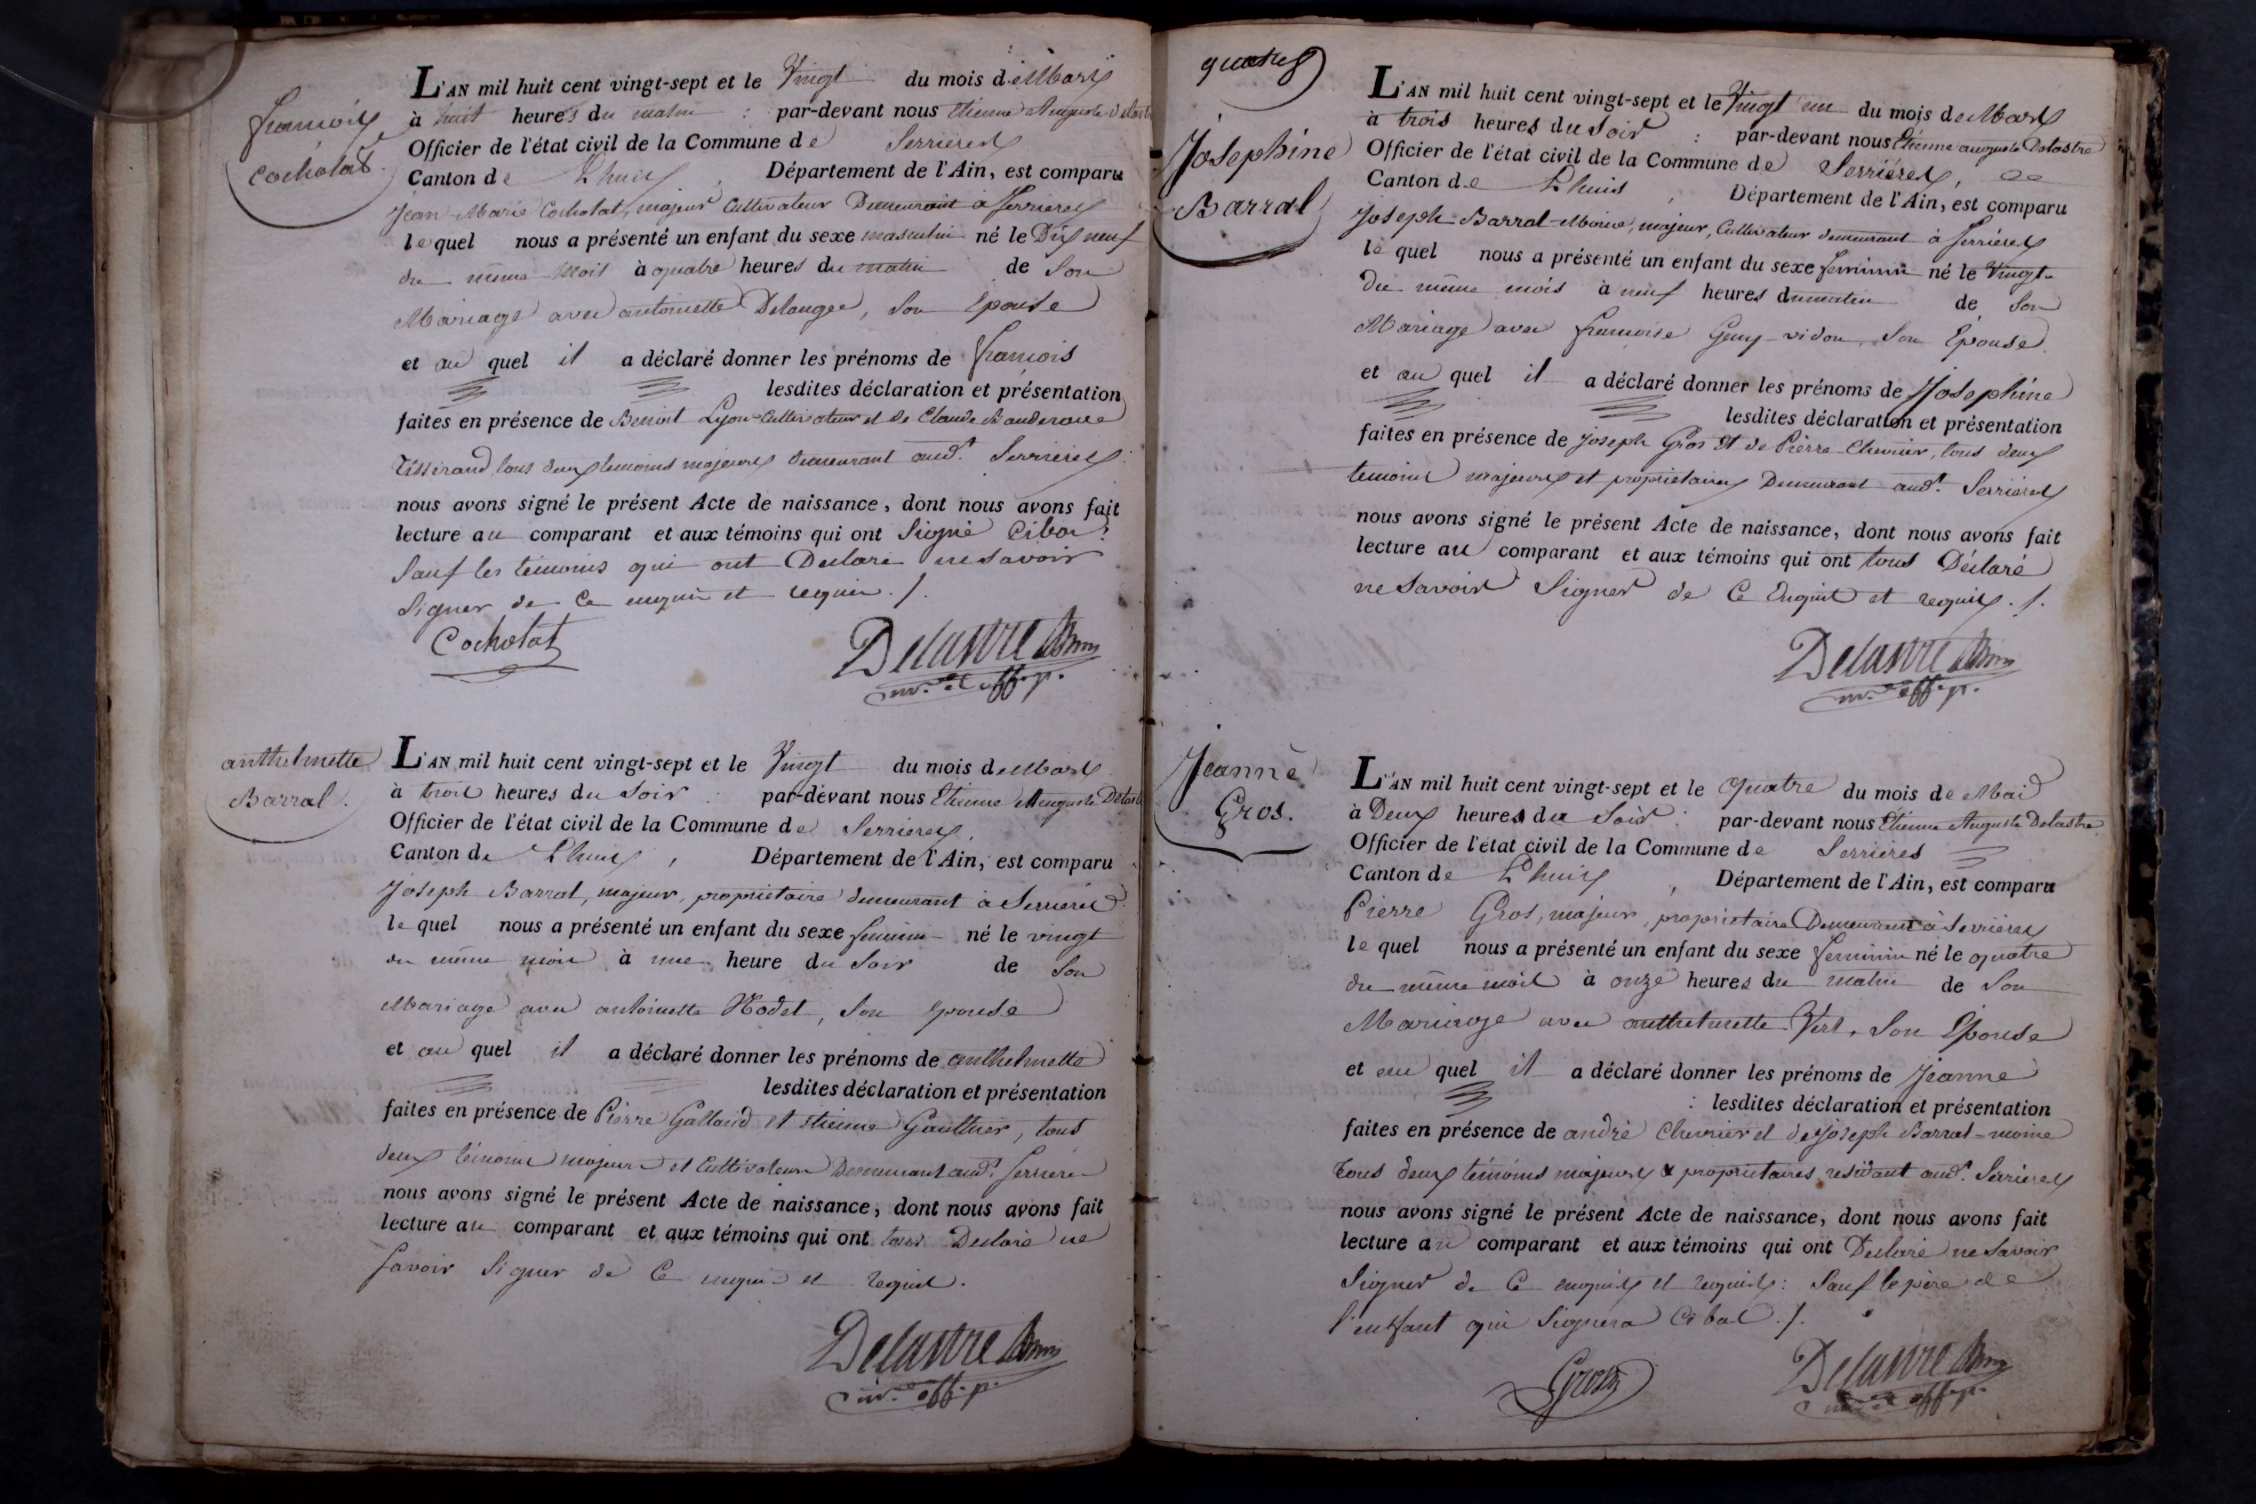 françois
Cocholat.
L'AN mil huit cent vingt-sept et le Vingt du mois de Mars
à huit heures du matin : par-devant nous Etienne Auguste
Officier de l'état civil de la Commune de Serrieres
Canton de Lhuis, Département de l'Ain, est comparu
Jean Marie Cocholat, majeur Cultivateur Demeurant à Serrieres
le quel nous a présenté un enfant du sexe masculin né le Dix neuf
du même mois à quatre heures du matin de Son
Mariage avec antoinette Delangee, Son Epouse
et au quel il a déclaré donner les prénoms de françois
lesdites déclaration et présentation
faites en présence de Benoit Lyon Cultivateur et de Claude
Tisserand, tous deux temoins majeurs demeurant aud.t Serrieres
nous avons signé le présent Acte de naissance, dont nous avons fait
lecture au comparant et aux témoins qui ont Signé
Sauf les témoins qui ont Declaré ne savoir
Signer de Ce enquis et requis ./.
Cocholat
Delastre
off. p.
anthelmette
Barral.
L'AN mil huit cent vingt-sept et le Vingt du mois de Mars
à trois heures du Soir : par-devant nous Etienne Auguste
Officier de l'état civil de la Commune de Serrieres,
Canton de Lhuis, Département de l'Ain, est comparu
Joseph Barral, majeur, propriétaire demeurant à Serrieres
le quel nous a présenté un enfant du sexe feminin né le vingt
du même mois à une heure du Soir de Son
Mariage avec antoinette Hodet, Son epouse
et au quel il a déclaré donner les prénoms de anthelmette
lesdites déclaration et présentation
faites en présence de Pierre Galland et etienne Gauthier, tous
deux témoins majeurs et Cultivateurs Demeurant aud.t Serrieres
nous avons signé le présent Acte de naissance, dont nous avons fait
lecture au comparant et aux témoins qui ont tous Declaré ne
Savoir Signer de Ce enquis et requis.
Delastre
off. p.
quatre
Josephine
Barral
L'AN mil huit cent vingt-sept et le Vingt un du mois de Mars
à trois heures du Soir : par-devant nous Etienne auguste Delastre
Officier de l'état civil de la Commune de Serriéres,
Canton de Lhuis, Département de l'Ain, est comparu
Joseph Barral-Moine, majeur, Cultivateur demeurant à Serriéres
le quel nous a présenté un enfant du sexe feminin né le Vingt
du même mois à neuf heures du matin de Son
Mariage avec francoise Guy-vidon, Son Epouse.
et au quel il a déclaré donner les prénoms de Josephine
lesdites déclaration et présentation
faites en présence de Joseph Gros et de Pierre Chevrier, tous deux
temoins majeurs et propriétaires Demeurant aud.t Serrieres
nous avons signé le présent Acte de naissance, dont nous avons fait
lecture au comparant et aux témoins qui ont tous Déclaré
ne Savoir Signer de Ce Enquis et requis ./.
Delastre
off. p.
Jeanne
Gros.
L'AN mil huit cent vingt-sept et le Quatre du mois de Mai
à Deux heures du Soir : par-devant nous Etienne Auguste Delastre
Officier de l'état civil de la Commune de Serriéres
Canton de Lhuis, Département de l'Ain, est comparu
Pierre Gros, majeur, propriétaire Demeurant à Serriéres
le quel nous a présenté un enfant du sexe feminin né le quatre
du même mois à onze heures du matin de Son
Mariage avec anthelmette Vert, Son Epouse
et au quel il a déclaré donner les prénoms de Jeanne
: lesdites déclaration et présentation
faites en présence de andré Chevrier et de Joseph Barral-moine
tous deux témoins majeurs & propriétaires residant aud.t Serrieres
nous avons signé le présent Acte de naissance, dont nous avons fait
lecture au comparant et aux témoins qui ont Declaré ne Savoir
Signer de Ce enquis et requis : Sauf le père de
l'enfant qui Signera Ci bas ./.
Gros
Delastre
off. p.